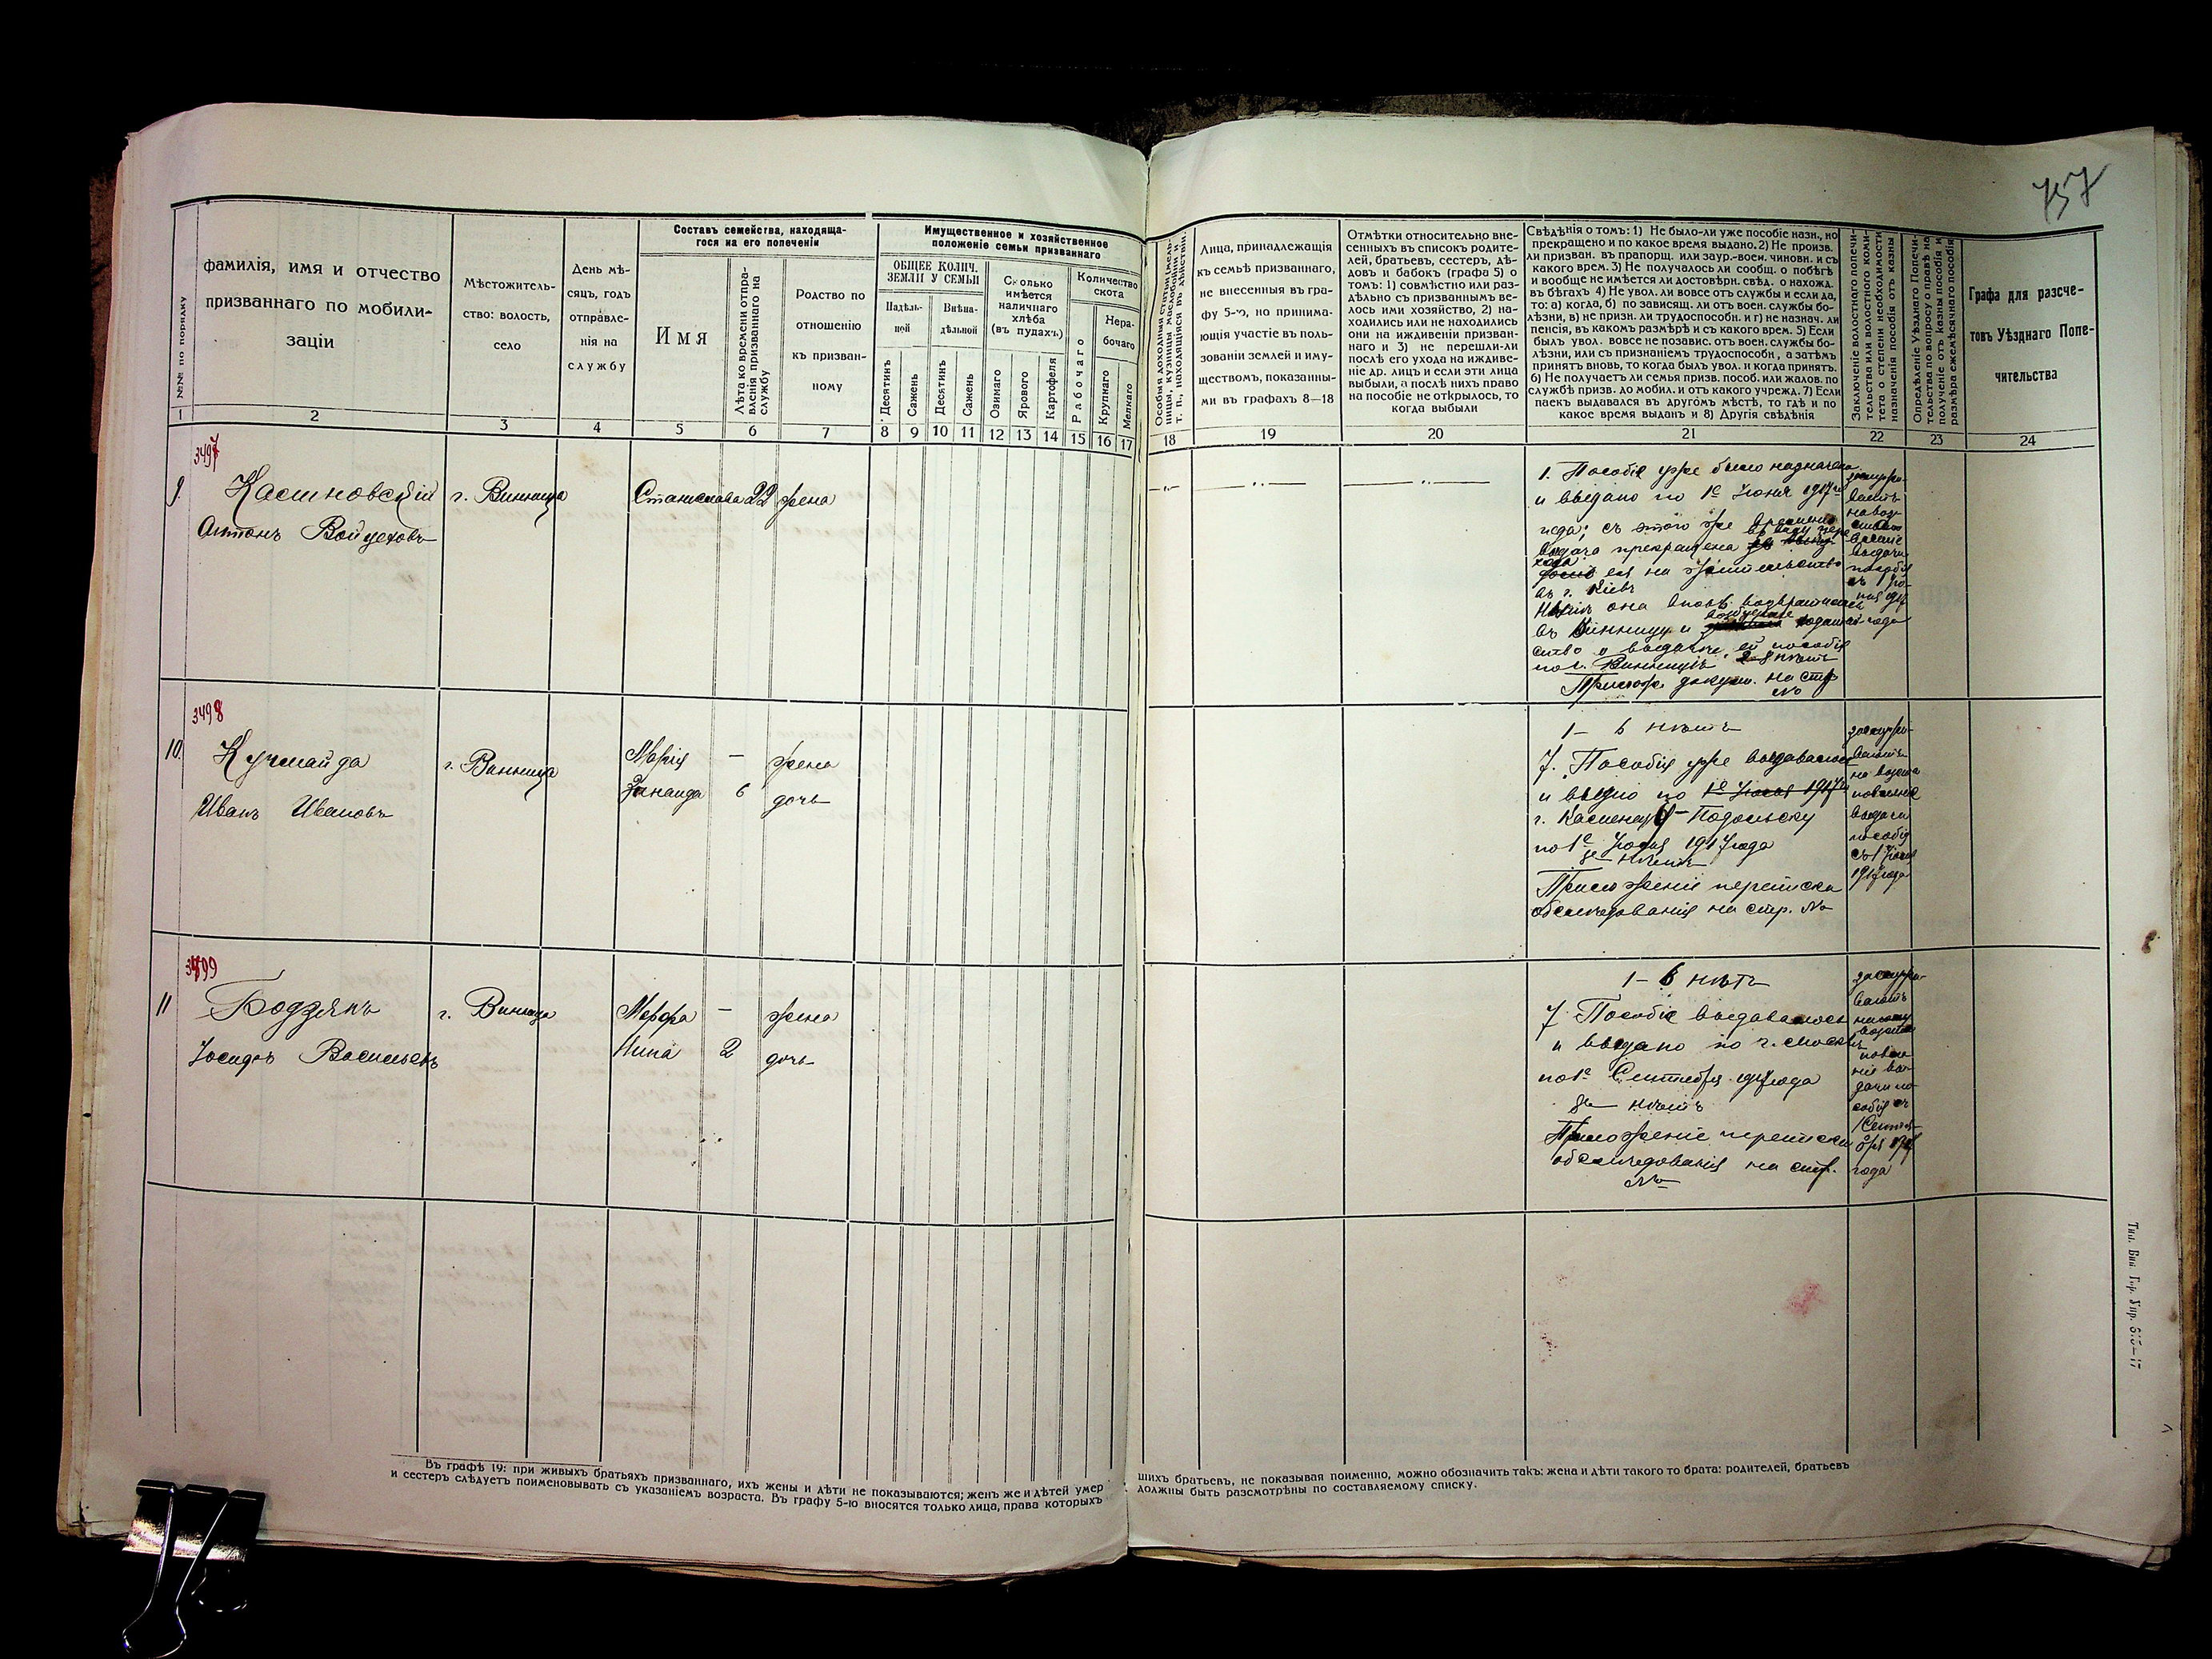 757
№№ по порядку
фамилія, имя и отчество
призваннаго по мобили-
заціи
Мѣстожитель-
ство: волость,
село
День мѣ-
сяцъ, годъ
отправле-
нія на
службу
Составъ семейства, находяща-
гося на его попеченіи
Имя
Лѣта ко времени отпра-
вленія призваннаго на
службу
Родство по
отношенію
къ призван-
ному
Имущественное и хозяйственное
положеніе семьи призваннаго
ОБЩЕЕ КОЛИЧ.
ЗЕМЛИ У СЕМЬИ
Надѣль-
ной
Внѣна-
дѣльной
Десятинъ
Сажень
Десятинъ
Сажень
Сколько
имѣется
наличнаго
хлѣба
(въ пудахъ)
Озимаго
Ярового
Картофеля
Количество
скота
Рабочаго
Нера-
бочаго
Крупнаго
Мелкаго
1 2 3 4 5 6 7 8 9 10 11 12 13 14 15 16 17
3497
9. Касиновскій г. Винница Станислава 22 жена
Антонъ Войцеховъ
3498
10. Кучмайда г. Винница Марія — жена
Иванъ Ивановъ Зинаида 6 дочь
3499
11 Бодзякъ г. Винница Марфа — жена
Іосифъ Васильевъ Нина 2 дочь
Въ графѣ 19: при живыхъ братьяхъ призваннаго, ихъ жены и дѣти не показываются; женъ же и дѣтей умер
и сестеръ слѣдуетъ поименовывать съ указаніемъ возраста. Въ графу 5-ю вносятся только лица, права которыхъ
Особыя доходныя статьи: мель-
ницы, кузницы, маслобойни и
т. п., находящіеся въ дѣйствіи.
Лица, принадлежащія
къ семьѣ призваннаго,
не внесенныя въ гра-
фу 5-ю, но принима-
ющія участіе въ поль-
зованіи землей и иму-
ществомъ, показанны-
ми въ графахъ 8—18
Отмѣтки относительно вне-
сенныхъ въ списокъ родите-
лей, братьевъ, сестеръ, дѣ-
довъ и бабокъ (графа 5) о
томъ: 1) совмѣстно или раз-
дѣльно съ призваннымъ ве-
лось ими хозяйство, 2) на-
ходились или не находились
они на иждивеніи призван-
наго и 3) не перешли-ли
послѣ его ухода на иждиве-
ніе др. лицъ и если эти лица
выбыли, а послѣ нихъ право
на пособіе не открылось, то
когда выбыли
Свѣдѣнія о томъ: 1) Не было-ли уже пособіе назн., но
прекращено и по какое время выдано. 2) Не произв.
ли призван. въ прапорщ. или заур.-воен. чиновн. и съ
какого врем. 3) Не получалось ли сообщ. о побѣгѣ
и вообще не имѣется ли достовѣрн. свѣд. о нахожд.
въ бѣгахъ 4) Не увол. ли вовсе отъ службы и если да,
то: а) когда, б) по зависящ. ли отъ воен. службы бо-
лѣзни, в) не призн. ли трудоспособн. и г) не назнач. ли
пенсія, въ какомъ размѣрѣ и съ какого врем. 5) Если
былъ увол. вовсе не позавис. отъ воен. службы бо-
лѣзни, или съ признаніемъ трудоспособн, а затѣмъ
принятъ вновь, то когда былъ увол. и когда принятъ.
6) Не получаетъ ли семья призв. пособ. или жалов. по
службѣ призв. до мобил. и отъ какого учрежд. 7) Если
паекъ выдавался въ другомъ мѣстѣ, то гдѣ и по
какое время выданъ и 8) Другія свѣдѣнія
Заключеніе волостного попечи-
тельства или волостного коми-
тета о степени необходимости
назначенія пособія отъ казны
Опредѣленіе Уѣзднаго Попечи-
тельства по вопросу о правѣ на
полученіе отъ казны пособія и
размѣра ежемѣсячнаго пособія
Графа для разсче-
товъ Уѣзднаго Попе-
чительства
18 19 20 21 22 23 24
1. Пособіе уже было назначено
и выдано по 1е Іюня 1917го
года; съ этого же времени
выдача прекращена въ виду пере
хода ея на жительство
въ г. Кіевъ
Нынѣ она вновь возвратилась
въ Винницу и возбуждае ходатай-
ство о выдачѣ ей пособія
по г. Винницѣ. 2-8 нѣтъ
Прилож. докум. на стр
№
заслужи-
ваетъ
на воз-
выдачи
пособія
съ 1 Iю-
ня 1917
года
1 — 6 нѣтъ
7. Пособія уже выдавалось
и выдано по 1е Іюля 1917г
г. Каменецъ-Подольску
по 1е Іюля 1917 года
8е нѣтъ
Приложеніе переписка
обслѣдованія на стр. №
заслужи-
ваетъ
на возоб
новленіе
выдачи
пособія
съ 1 Іюля
1917 года
1 — 6 нѣтъ
7 Пособіе выдавалось
и выдано по г. Москвѣ
по 1е Сентября 1917 года
8е нѣтъ
Приложеніе переписки
обслѣдованія на стр.
№
заслужи-
ваетъ
на
возоб
новле
ніе вы-
дачи по-
собія съ
1 Сентя-
бря 1917
года
шихъ братьевъ, не показывая поименно, можно обозначить такъ: жена и дѣти такого то брата: родителей, братьевъ
должны быть разсмотрѣны по составляемому списку.
Тип. Вин. Гор. Упр. 615—17